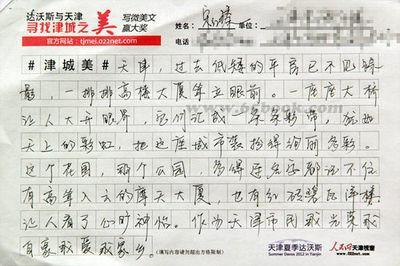 达沃斯与天津
寻找津城之美
写微美文
赢大奖
官方网站：tjmei.022net.com
姓名： 单位：
电话：
#津城美#天津，过去低矮的平房已不见踪
影，一排排高楼大厦耸立眼前。一座座大桥
让人大开眼界，它们汇成一条条彩带，犹如
天上的彩虹，把这座城市装扮得绚丽多彩。
这个花园，那个公园，多得连名字都记不住
有高耸入云的摩天大厦，也有红砖碧瓦洋楼
让人有了心旷神怡。作为天津市民我光荣我
自豪我爱我家乡。
(填写内容请勿超出方格限制)
天津夏季达沃斯
Summer Davos 2012 in Tianjin
人民网 天津视窗
www.022net.com